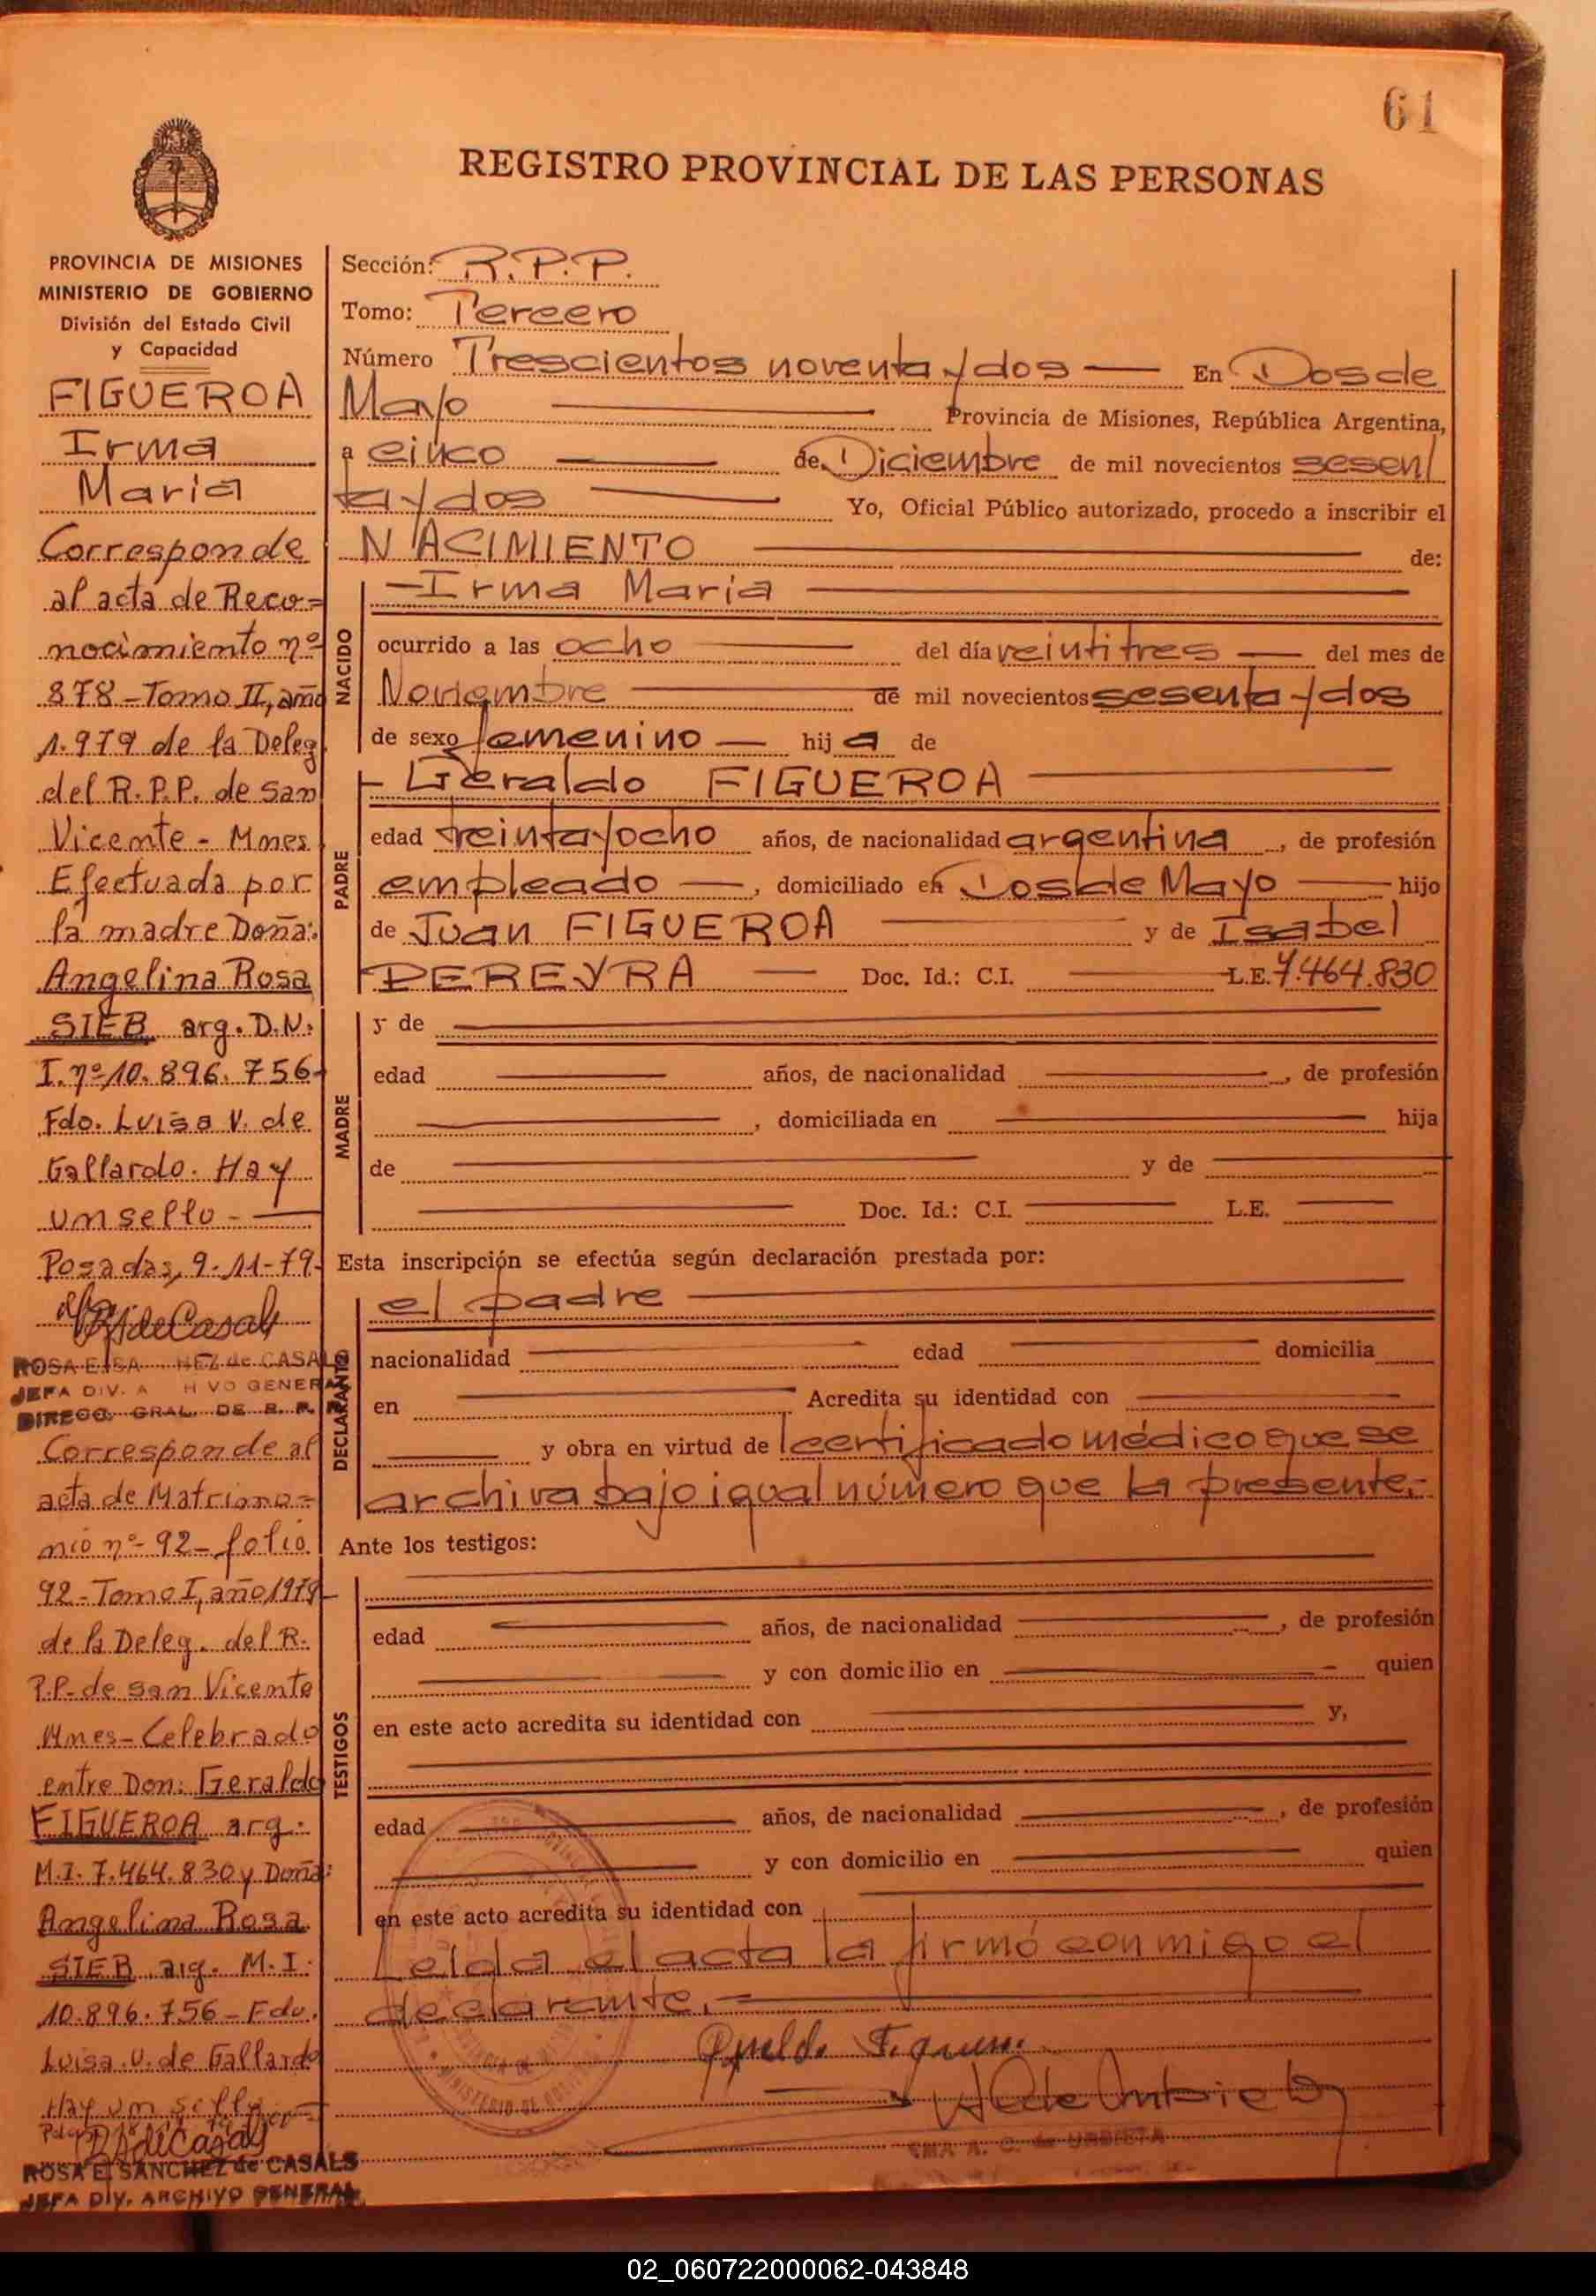 61
REGISTRO PROVINCIAL DE LAS PERSONAS
PROVINCIA DE MISIONES
MINISTERIO DE GOBIERNO
División del Estado Civil
y Capacidad
FIGUEROA
Irma
Maria
Corresponde
al acta de Reco=
nocimiento nº
878-Tomo II, año
1.979 de la Deleg.
del R.P.P. de San
Vicente - Mnes
Efectuada por
la madre Doña:
Angelina Rosa
SIEB arg. D.N.
I. nº 10.896.756-
Fdo. Luisa V. de
Gallardo. Hay
un sello -
Posadas, 9-11-79-
ROSA E. SANCHEZ de CASALS
JEFA DIV. ARCHIVO GENERAL
DIRECC. GRAL. DE R. P. P.
Corresponde al
acta de Matrimo=
nio nº 92- folio
92-Tomo I, año 1979-
de la Deleg. del R.
P.P. de San Vicente
Mnes- Celebrado
entre Don: Geraldo
FIGUEROA arg.
M.I. 7.464.830 y Doña:
Angelina Rosa
SIEB arg. M.I.
10.896.756- Fdo.
Luisa.V. de Gallardo
Hay un sello
ROSA E. SANCHEZ de CASALS
JEFA DIV. ARCHIVO GENERAL
Sección: R.P.P.
Tomo: Tercero
Número Trescientos noventa y dos — En Dos de
Mayo — Provincia de Misiones, República Argentina,
a cinco — de Diciembre de mil novecientos sesen/
ta y dos — Yo, Oficial Público autorizado, procedo a inscribir el
NACIMIENTO — de:
NACIDO
-Irma Maria —
ocurrido a las ocho — del día veintitres — del mes de
Noviembre — de mil novecientos sesenta y dos
de sexo femenino — hij a de
PADRE
- Geraldo FIGUEROA —
edad treinta y ocho años, de nacionalidad argentina, de profesión
empleado —, domiciliado en Dos de Mayo — hijo
de Juan FIGUEROA — y de Isabel
PEREYRA — Doc. Id.: C.I. — L.E. 7.464.830
MADRE
y de —
edad — años, de nacionalidad —, de profesión
—, domiciliada en — hija
de — y de —
— Doc. Id.: C.I. — L.E. —
Esta inscripción se efectúa según declaración prestada por:
DECLARANTE
el padre —
nacionalidad — edad — domicilia
en — Acredita su identidad con —
— y obra en virtud de certificado médico que se
archiva bajo igual número que la presente.-
Ante los testigos:
TESTIGOS
edad — años, de nacionalidad —, de profesión
— y con domicilio en — quien
en este acto acredita su identidad con — y,
edad — años, de nacionalidad —, de profesión
— y con domicilio en — quien
en este acto acredita su identidad con —
Leida el acta la firmó conmigo el
declarante. —
02_060722000062-043848